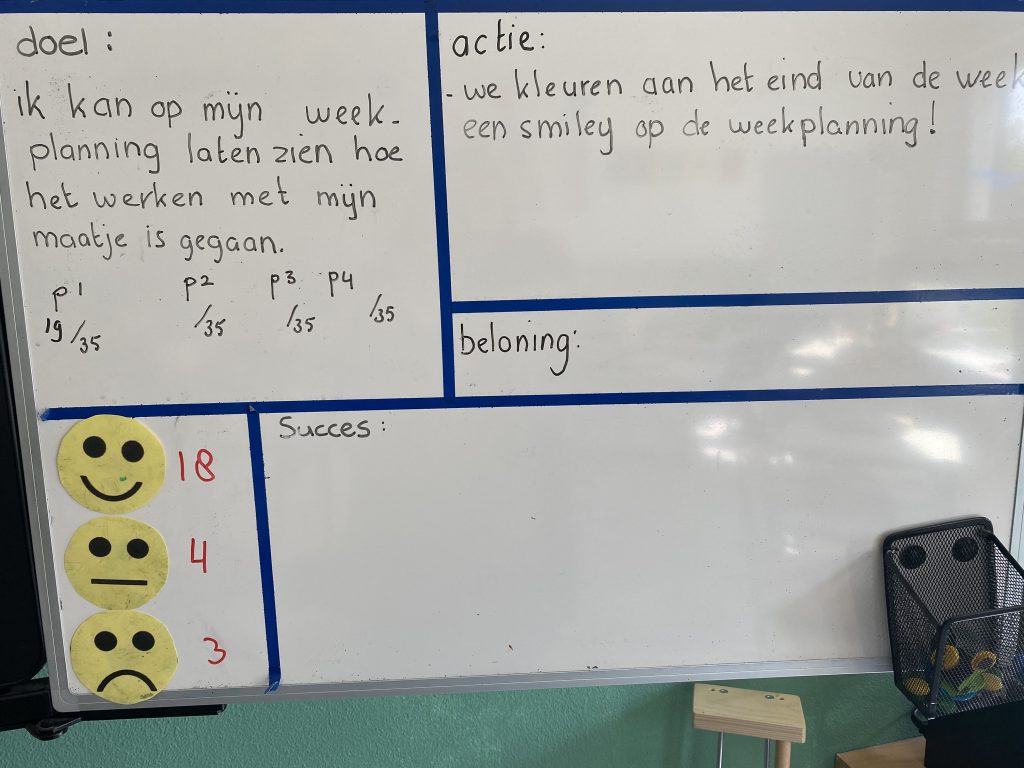 doel:
ik kan op mijn week-
planning laten zien hoe
het werken met mijn
maatje is gegaan.
p1 p2 p3 p4
19/35 /35 /35 /35
actie:
- we kleuren aan het eind van de week
een smiley op de weekplanning!
beloning:
18
4
3
Succes: